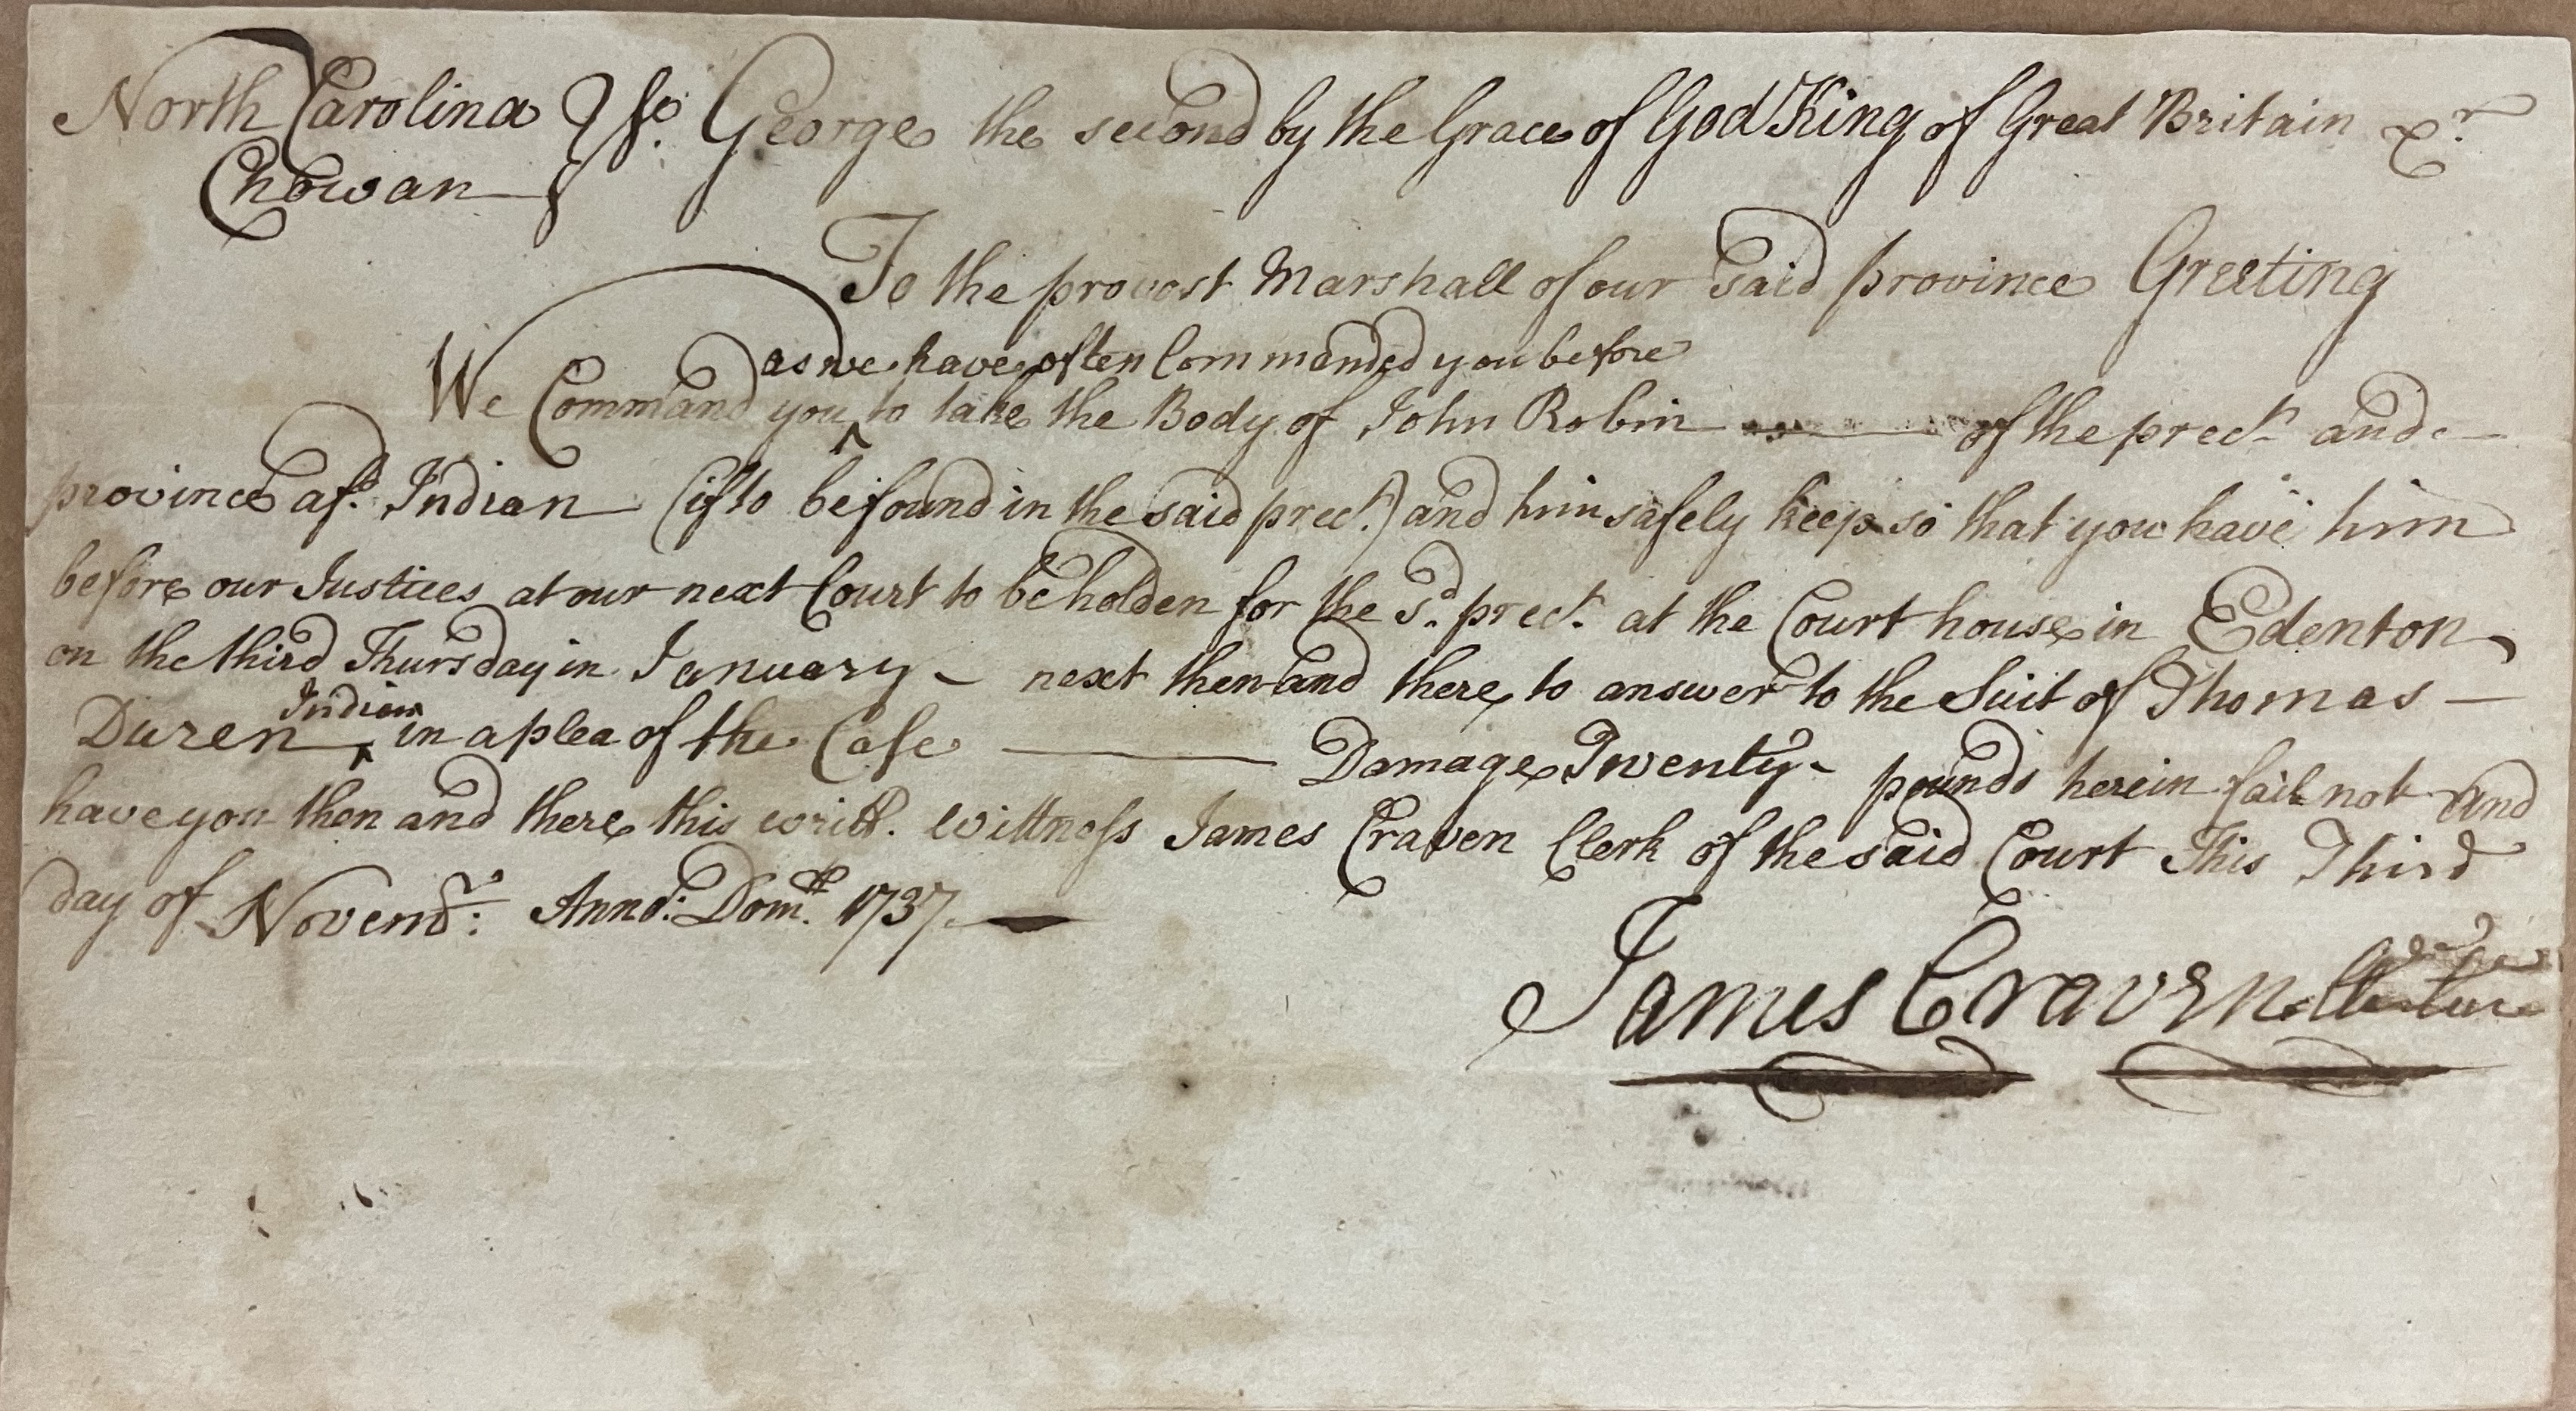 North Carolina } Ss. George the second by the Grace of God King of Great Britain &c.
Chowan
To the provost Marshall of our said province Greeting
as we have often Commanded you before
We Command you ‸ to take the Body of John Robin of the prect. and
province afsd. Indian (if to be found in the said prect.) and him safely keep so that you have him
before our Justices at our next Court to be holden for the Sd. prect. at the Court house in Edenton
on the third Thursday in January - next then and there to answer to the Suit of Thomas -
Indian
Duren ‸ in a plea of the Case Damage Twenty - pounds herein fail not and
have you then and there this writt. Wittness James Craven Clerk of the said Court This Third
day of Novembr: Anno: Dom. 1737
James Craven